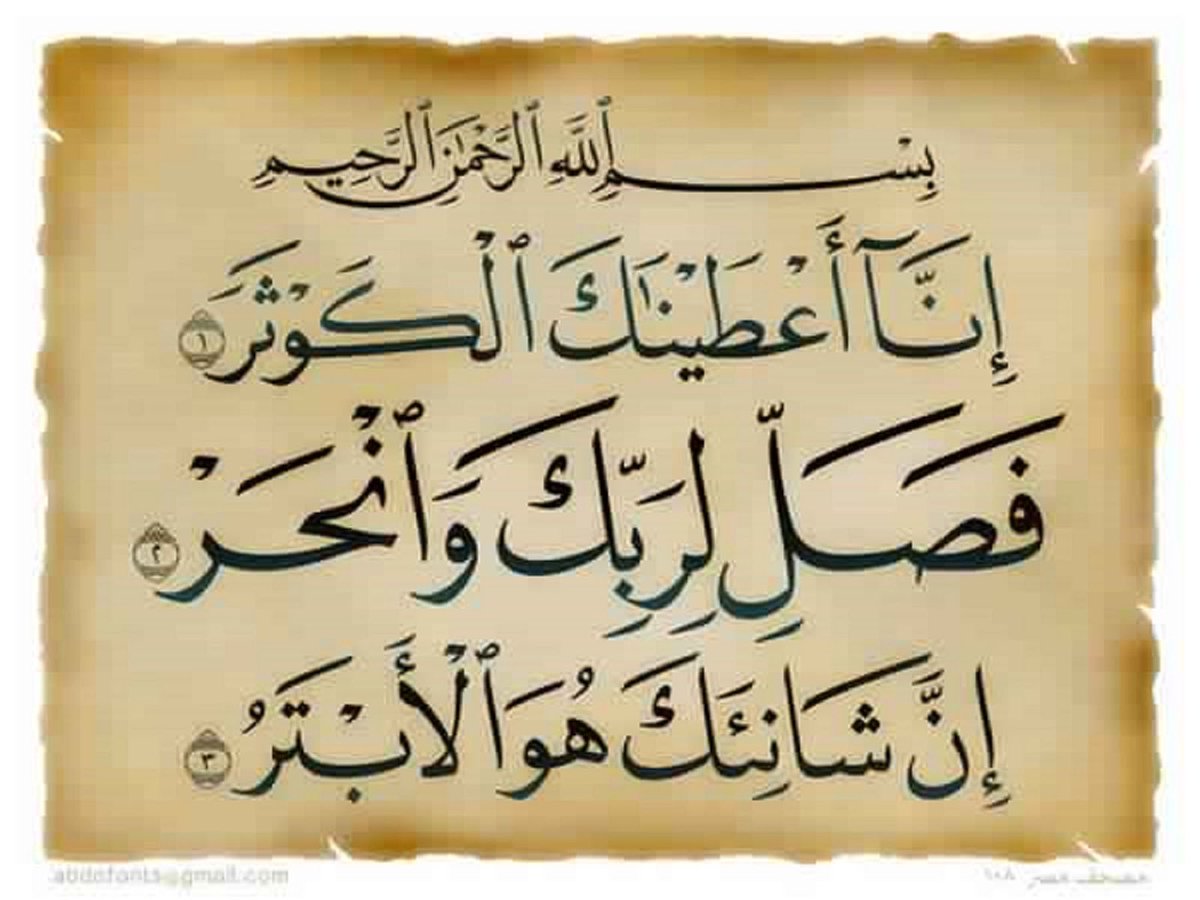 بِسْمِ ٱللَّهِ ٱلرَّحْمَٰنِ ٱلرَّحِيمِ
إِنَّآ أَعْطَيْنَٰكَ ٱلْكَوْثَرَ ١
فَصَلِّ لِرَبِّكَ وَٱنْحَرْ ٢
إِنَّ شَانِئَكَ هُوَ ٱلْأَبْتَرُ ٣
مصحف مصر ١٠٨
abdofonts@gmail.com